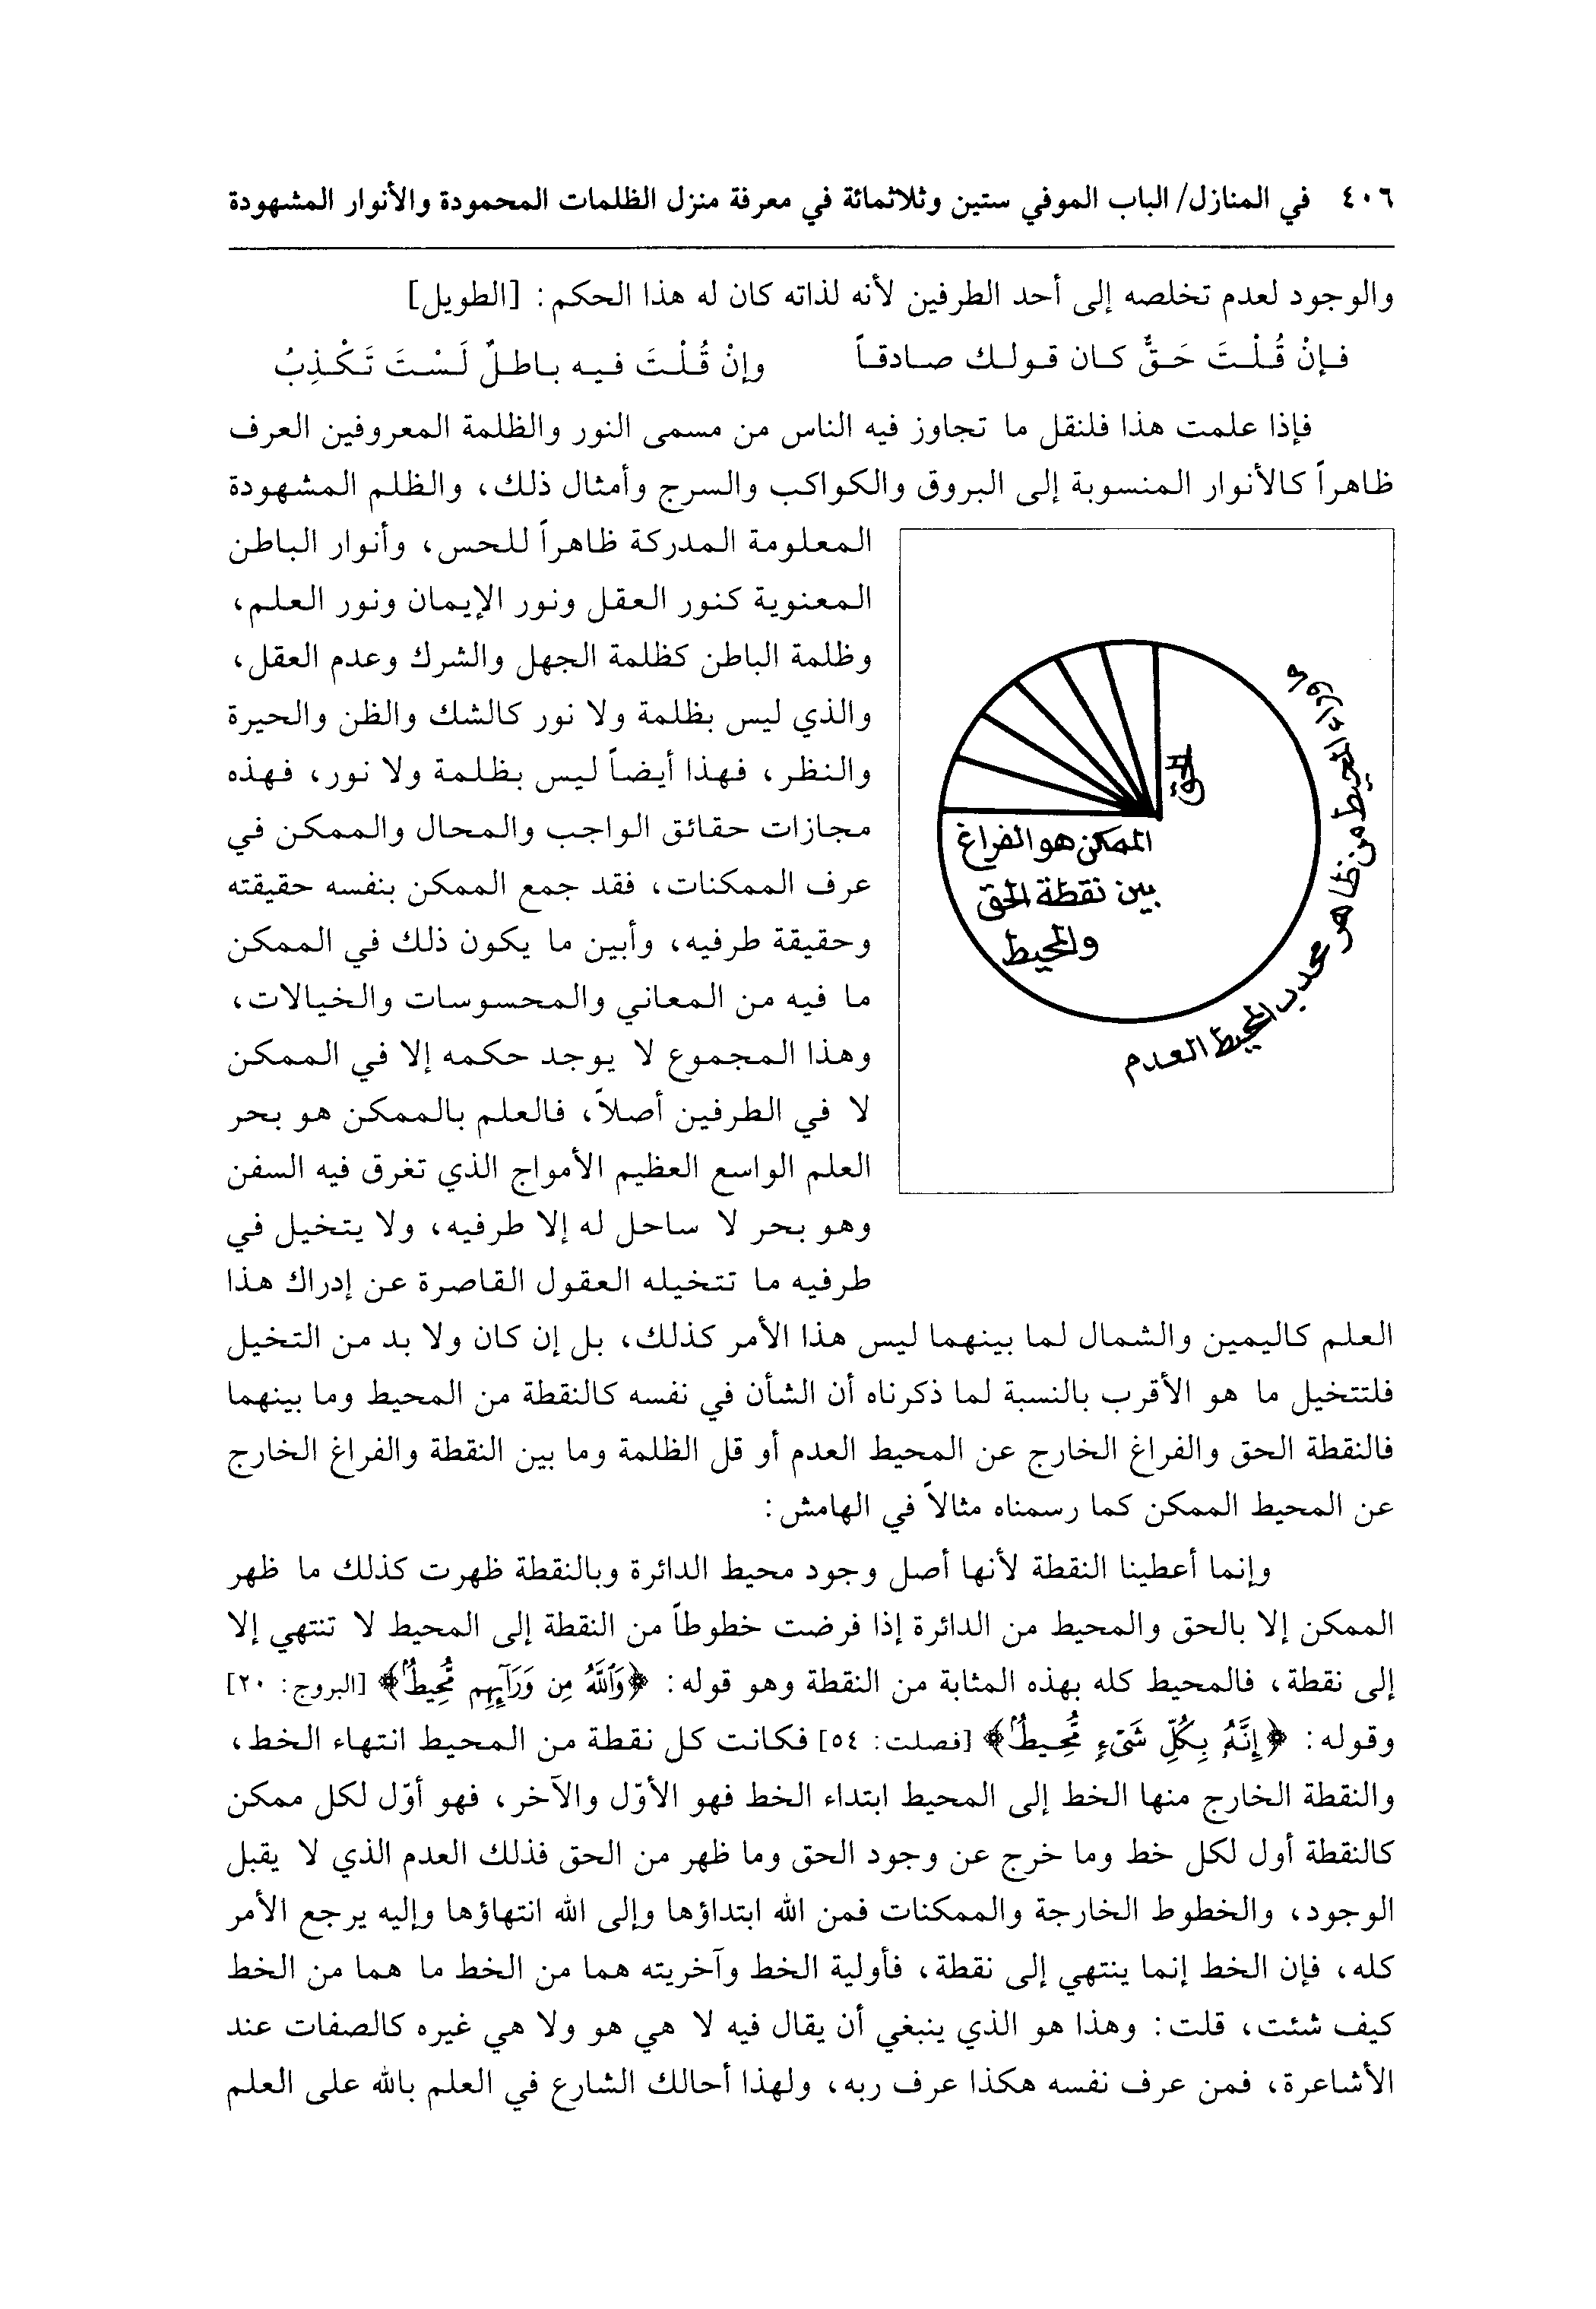 ٤٠٦ في المنازل/ الباب الموفي ستين وثلاثمائة في معرفة منزل الظلمات المحمودة والأنوار المشهودة
والوجود لعدم تخلصه إلى أحد الطرفين لأنه لذاته كان له هذا الحكم: [الطويل]
فإنْ قُلْتَ حَقٌّ كان قولك صادقاً وإنْ قُلْتَ فيه باطلٌ لَسْتَ تَكْذِبُ
فإذا علمت هذا فلنقل ما تجاوز فيه الناس من مسمى النور والظلمة المعروفين العرف
ظاهراً كالأنوار المنسوبة إلى البروق والكواكب والسرج وأمثال ذلك، والظلم المشهودة
المعلومة المدركة ظاهراً للحس، وأنوار الباطن
المعنوية كنور العقل ونور الإيمان ونور العلم،
وظلمة الباطن كظلمة الجهل والشرك وعدم العقل،
والذي ليس بظلمة ولا نور كالشك والظن والحيرة
والنظر، فهذا أيضاً ليس بظلمة ولا نور، فهذه
مجازات حقائق الواجب والمحال والممكن في
عرف الممكنات، فقد جمع الممكن بنفسه حقيقته
وحقيقة طرفيه، وأبين ما يكون ذلك في الممكن
ما فيه من المعاني والمحسوسات والخيالات،
وهذا المجموع لا يوجد حكمه إلا في الممكن
لا في الطرفين أصلاً، فالعلم بالممكن هو بحر
العلم الواسع العظيم الأمواج الذي تغرق فيه السفن
وهو بحر لا ساحل له إلا طرفيه، ولا يتخيل في
طرفيه ما تتخيله العقول القاصرة عن إدراك هذا
الحق
الممكن هو الفراغ
بين نقطة الحق
والمحيط
وراء المحيط من ظاهر محدب المحيط العدم
العلم كاليمين والشمال لما بينهما ليس هذا الأمر كذلك، بل إن كان ولا بد من التخيل
فلتتخيل ما هو الأقرب بالنسبة لما ذكرناه أن الشأن في نفسه كالنقطة من المحيط وما بينهما
فالنقطة الحق والفراغ الخارج عن المحيط العدم أو قل الظلمة وما بين النقطة والفراغ الخارج
عن المحيط الممكن كما رسمناه مثالاً في الهامش:
وإنما أعطينا النقطة لأنها أصل وجود محيط الدائرة وبالنقطة ظهرت كذلك ما ظهر
الممكن إلا بالحق والمحيط من الدائرة إذا فرضت خطوطاً من النقطة إلى المحيط لا تنتهي إلا
إلى نقطة، فالمحيط كله بهذه المثابة من النقطة وهو قوله: ﴿وَاللَّهُ مِن وَرَآئِهِم مُّحِيطٌ﴾ [البروج: ٢٠]
وقوله: ﴿إِنَّهُ بِكُلِّ شَىْءٍ مُّحِيطٌ﴾ [فصلت: ٥٤] فكانت كل نقطة من المحيط انتهاء الخط،
والنقطة الخارج منها الخط إلى المحيط ابتداء الخط فهو الأوّل والآخر، فهو أوّل لكل ممكن
كالنقطة أول لكل خط وما خرج عن وجود الحق وما ظهر من الحق فذلك العدم الذي لا يقبل
الوجود، والخطوط الخارجة والممكنات فمن الله ابتداؤها وإلى الله انتهاؤها وإليه يرجع الأمر
كله، فإن الخط إنما ينتهي إلى نقطة، فأولية الخط وآخريته هما من الخط ما هما من الخط
كيف شئت، قلت: وهذا هو الذي ينبغي أن يقال فيه لا هي هو ولا هي غيره كالصفات عند
الأشاعرة، فمن عرف نفسه هكذا عرف ربه، ولهذا أحالك الشارع في العلم بالله على العلم